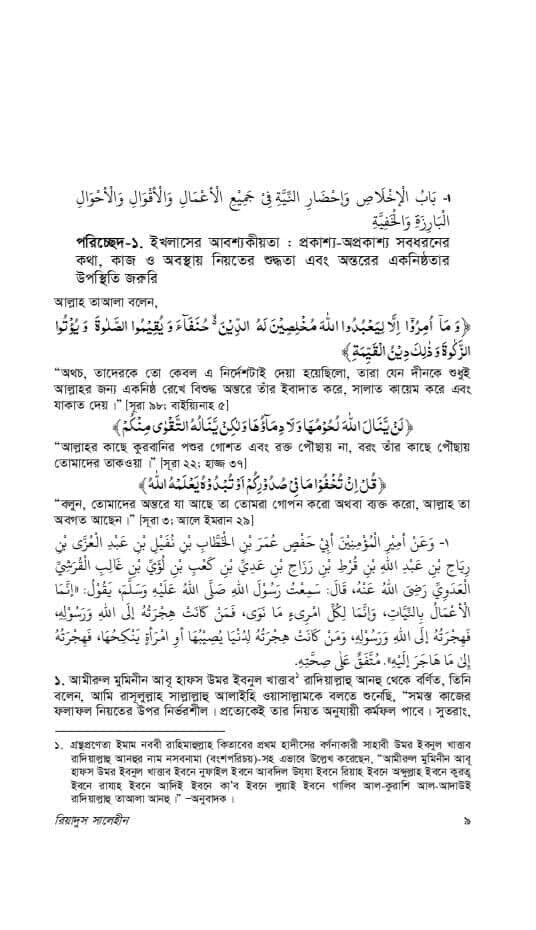 ١- بَابُ الْإِخْلَاصِ وَإِحْضَارِ النِّيَّةِ فِيْ جَمِيْعِ الْأَعْمَالِ وَالْأَقْوَالِ وَالْأَحْوَالِ
الْبَارِزَةِ وَالْخَفِيَّةِ
পরিচ্ছেদ-১. ইখলাসের আবশ্যকীয়তা : প্রকাশ্য-অপ্রকাশ্য সবধরনের
কথা, কাজ ও অবস্থায় নিয়তের শুদ্ধতা এবং অন্তরের একনিষ্ঠতার
উপস্থিতি জরুরি
আল্লাহ তাআলা বলেন,
﴿وَ مَاۤ اُمِرُوْۤا اِلَّا لِيَعْبُدُوا اللّٰهَ مُخْلِصِيْنَ لَهُ الدِّيْنَ ۙ۬ حُنَفَآءَ وَ يُقِيْمُوا الصَّلٰوةَ وَ يُؤْتُوا
الزَّكٰوةَ وَ ذٰلِكَ دِيْنُ الْقَيِّمَةِ﴾
“অথচ, তাদেরকে তো কেবল এ নির্দেশটাই দেয়া হয়েছিলো, তারা যেন দীনকে শুধুই
আল্লাহর জন্য একনিষ্ঠ রেখে বিশুদ্ধ অন্তরে তাঁর ইবাদাত করে, সালাত কায়েম করে এবং
যাকাত দেয় ।” [সূরা ৯৮; বাইয়্যিনাহ ৫]
﴿لَنْ يَّنَالَ اللّٰهَ لُحُوْمُهَا وَ لَا دِمَآؤُهَا وَلٰكِنْ يَّنَالُهُ التَّقْوٰى مِنْكُمْ﴾
“আল্লাহর কাছে কুরবানির পশুর গোশত এবং রক্ত পৌঁছায় না, বরং তাঁর কাছে পৌঁছায়
তোমাদের তাকওয়া ।” [সূরা ২২; হাজ্জ ৩৭]
﴿قُلْ اِنْ تُخْفُوْا مَا فِيْ صُدُوْرِكُمْ اَوْ تُبْدُوْهُ يَعْلَمْهُ اللّٰهُ﴾
“বলুন, তোমাদের অন্তরে যা আছে তা তোমরা গোপন করো অথবা ব্যক্ত করো, আল্লাহ তা
অবগত আছেন ।” [সূরা ৩; আলে ইমরান ২৯]
١- وَعَنْ أَمِيْرِ الْمُؤْمِنِيْنَ أَبِيْ حَفْصٍ عُمَرَ بْنِ الْخَطَّابِ بْنِ نُفَيْلِ بْنِ عَبْدِ الْعُزَّى بْنِ
رِيَاحِ بْنِ عَبْدِ اللهِ بْنِ قُرْطِ بْنِ رَزَاحِ بْنِ عَدِيِّ بْنِ كَعْبِ بْنِ لُؤَيِّ بْنِ غَالِبٍ الْقُرَشِيِّ
الْعَدَوِيِّ رَضِيَ اللهُ عَنْهُ، قَالَ: سَمِعْتُ رَسُوْلَ اللهِ صَلَّى اللهُ عَلَيْهِ وَسَلَّمَ، يَقُوْلُ: «إِنَّمَا
الْأَعْمَالُ بِالنِّيَّاتِ، وَإِنَّمَا لِكُلِّ امْرِىءٍ مَا نَوَى، فَمَنْ كَانَتْ هِجْرَتُهُ إِلَى اللهِ وَرَسُوْلِهِ،
فَهِجْرَتُهُ إِلَى اللهِ وَرَسُوْلِهِ، وَمَنْ كَانَتْ هِجْرَتُهُ لِدُنْيَا يُصِيْبُهَا أَوِ امْرَأَةٍ يَنْكِحُهَا، فَهِجْرَتُهُ
إِلَى مَا هَاجَرَ إِلَيْهِ». مُتَّفَقٌ عَلَى صِحَّتِهِ.
১. আমীরুল মুমিনীন আবূ হাফস উমর ইবনুল খাত্তাব¹ রাদিয়াল্লাহু আনহু থেকে বর্ণিত, তিনি
বলেন, আমি রাসূলুল্লাহ সাল্লাল্লাহু আলাইহি ওয়াসাল্লামকে বলতে শুনেছি, “সমস্ত কাজের
ফলাফল নিয়তের উপর নির্ভরশীল। প্রত্যেকেই তার নিয়ত অনুযায়ী কর্মফল পাবে। সুতরাং,
১. গ্রন্থপ্রণেতা ইমাম নববী রাহিমাহুল্লাহ কিতাবের প্রথম হাদীসের বর্ণনাকারী সাহাবী উমর ইবনুল খাত্তাব
রাদিয়াল্লাহু আনহুর নাম নসবনামা (বংশপরিচয়)-সহ এভাবে উল্লেখ করেছেন, “আমীরুল মুমিনীন আবূ
হাফস উমর ইবনুল খাত্তাব ইবনে নুফাইল ইবনে আবদিল উয্যা ইবনে রিয়াহ ইবনে অব্দুল্লাহ ইবনে কুরত্ব
ইবনে রাযাহ ইবনে আদিই ইবনে কা'ব ইবনে লুয়াই ইবনে গালিব আল-কুরাশি আল-আদাউই
রাদিয়াল্লাহু তাআলা আনহু ।” –অনুবাদক ।
রিয়াদুস সালেহীন
৯